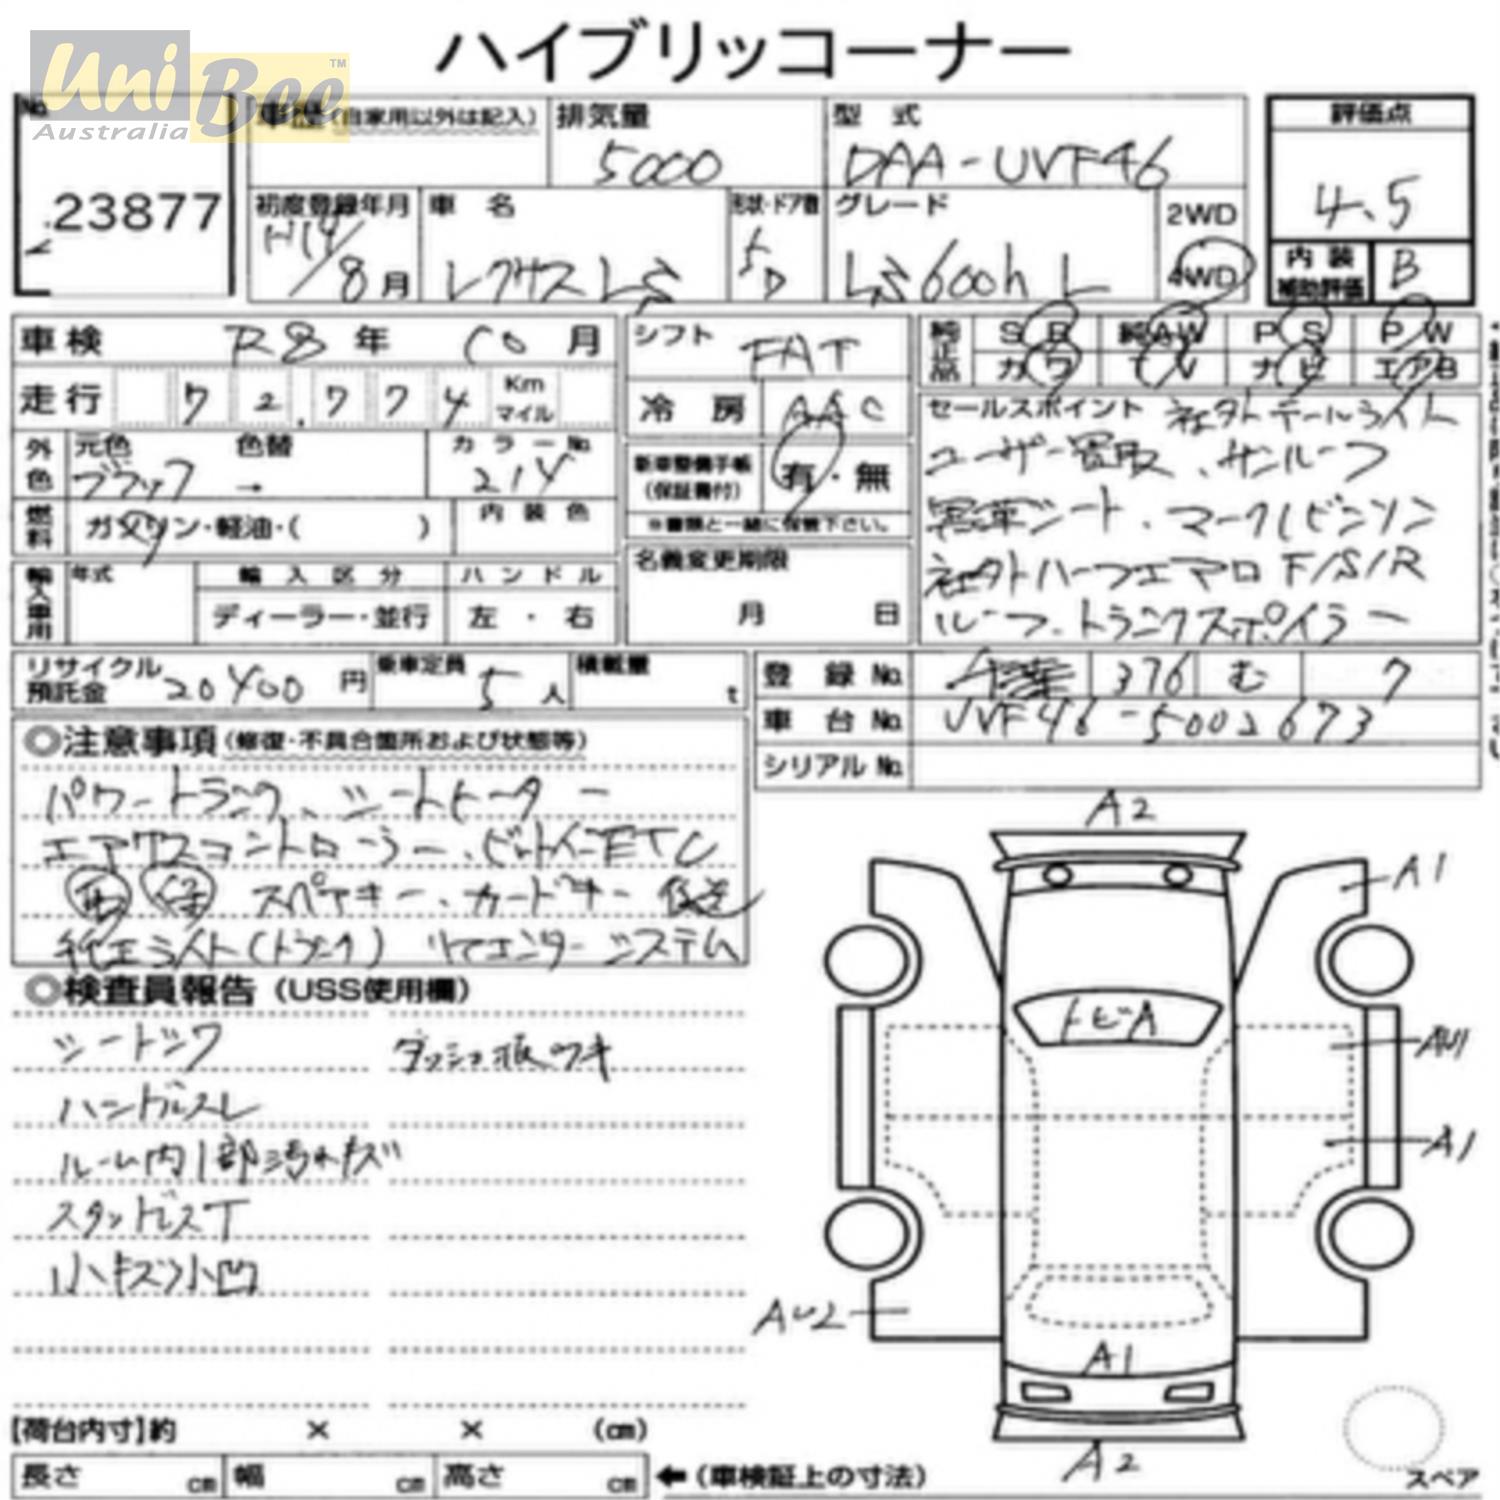 ハイブリッコーナー
Uni Bee™
Australia
No.
23877
車歴(自家用以外は記入)
排気量
5000
型 式
DAA-UVF46
評価点
4.5
内装補助評価
B
初度登録年月
8月
車 名
レクサス LS
形状・ドア数
5D
グレード
LS600h L
2WD
4WD
車検 R8年 10月
走行 72,774 Km マイル
外色
元色
ブラック
色替
→
カラーNo.
燃料
ガソリン・軽油・( )
内装色
輸入車用
年式
輸入区分
ディーラー・並行
ハンドル
左・右
シフト
FAT
冷房
AAC
新車整備手帳(保証書付)
有・無
※書類と一緒に保管下さい。
名義変更期限
月 日
純正品
SR 純AW PS PW
カワ TV ナビ エアB
セールスポイント 社外テールライト
ユーザー買取、サンルーフ
黒革シート、マークレビンソン
社外ハーフエアロ F/S/R
ルーフ、トランクスポイラー
リサイクル預託金 20400円
乗車定員 5人
積載量 t
登録No. 千葉 376 む 7
車台No. UVF46-5002673
シリアルNo.
◎注意事項(修復・不具合箇所および状態等)
パワートランク、シートヒーター
エアサスコントローラー、ビルトインETC
スペアキー、カードキー 後送
ライト(トランク) リヤエンターシステム
◎検査員報告(USS使用欄)
シートシワ
ダッシュ板ウキ
ハンドルスレ
ルーム内1部汚れキズ
スタッドレスT
小キズ小凹
A2
A1
トビA
AU1
A1
AU2
A1
A2
スペア
【荷台内寸】約 × × (cm)
長さ cm 幅 cm 高さ cm ←(車検証上の寸法)